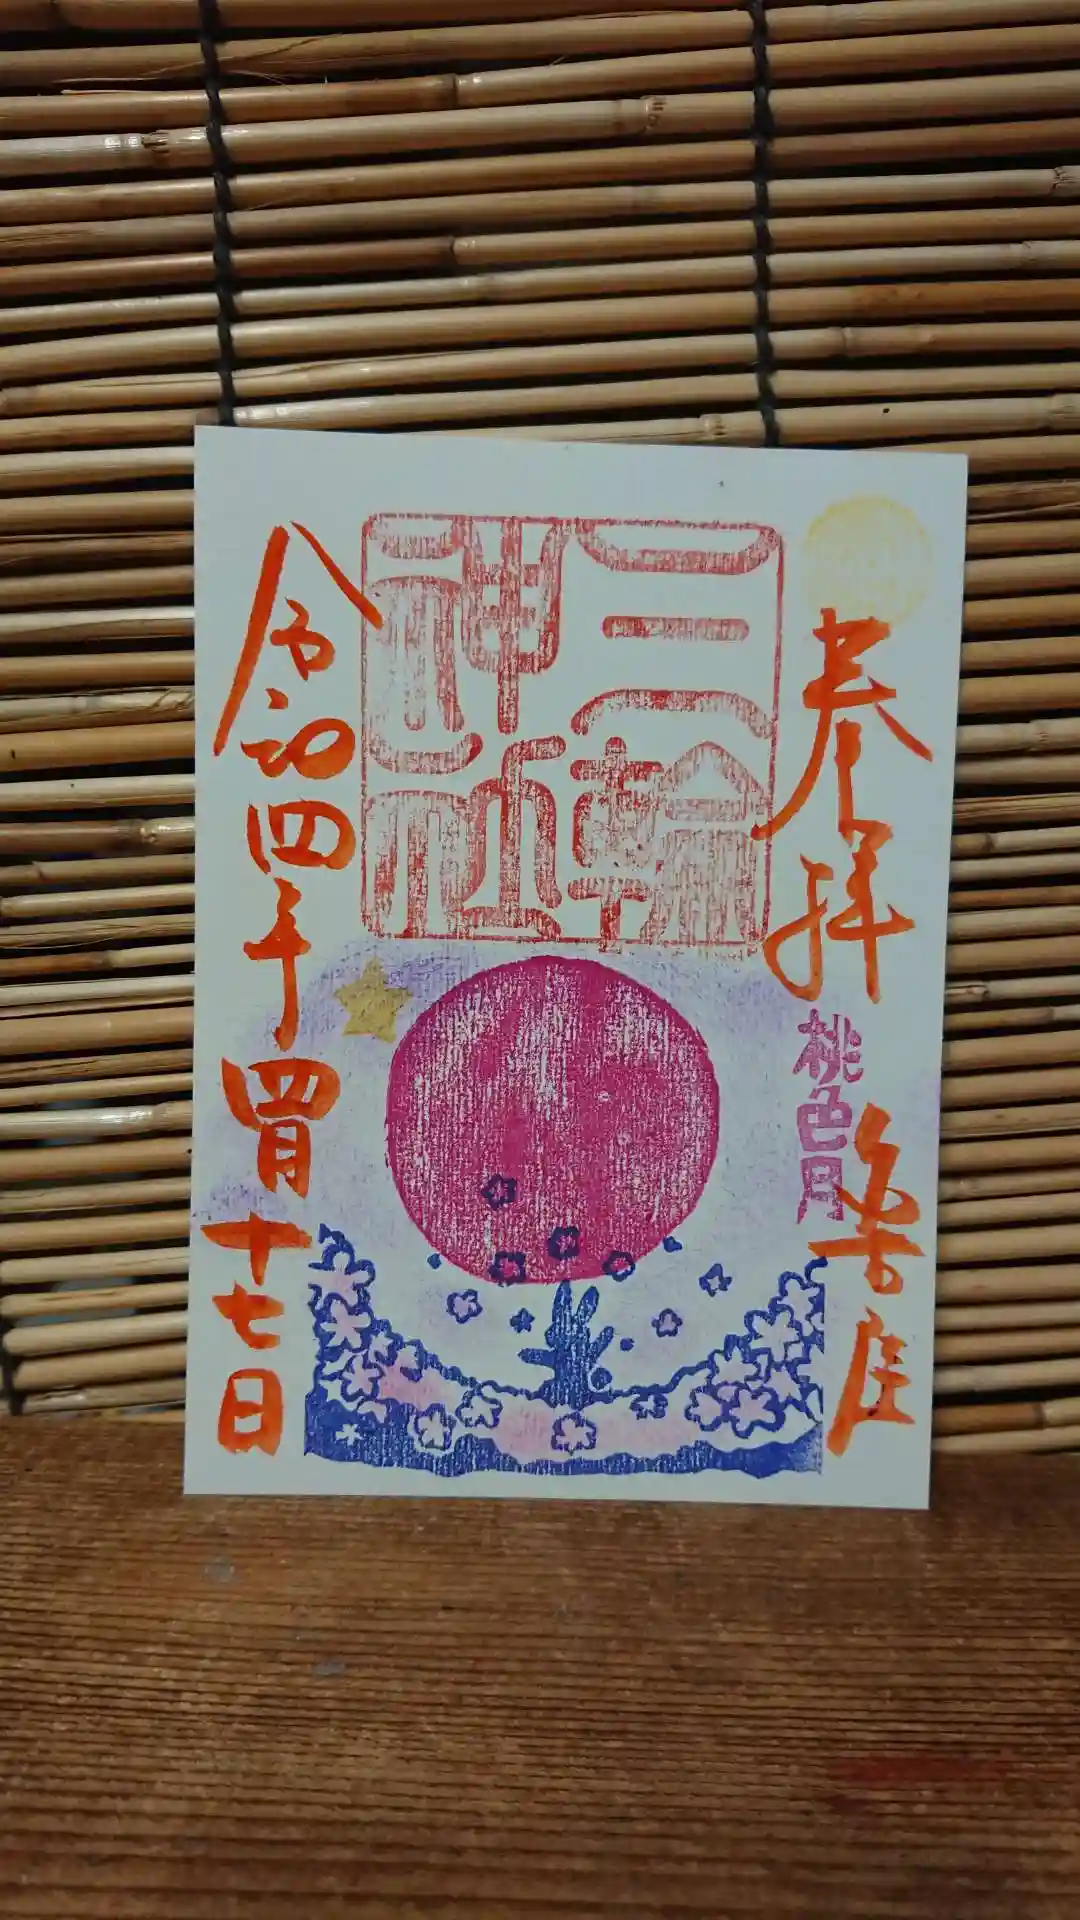 奉拝 名古屋
桃色月
三輪
神社
令和四年四月十七日